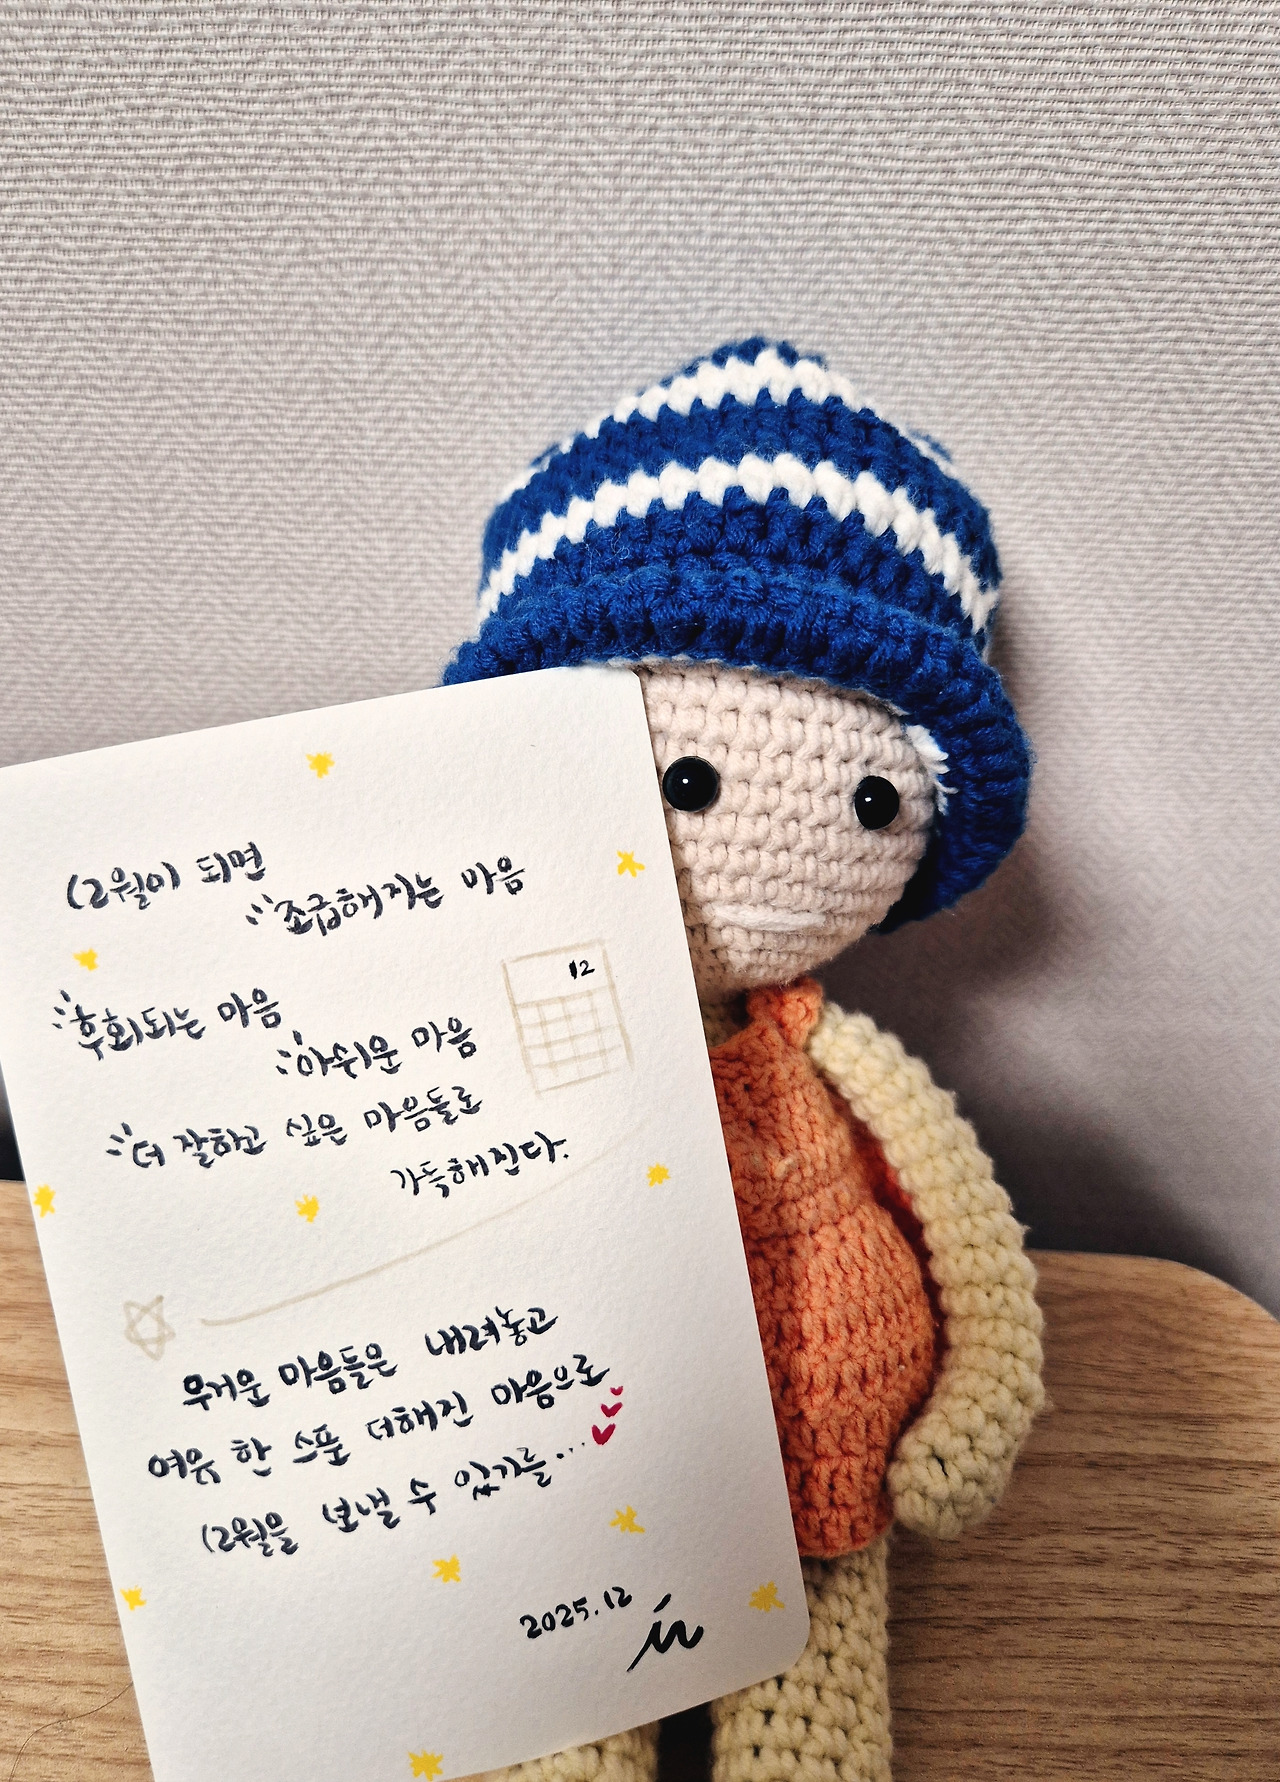 12월이 되면
조급해지는 마음
12
후회되는 마음
아쉬운 마음
더 잘하고 싶은 마음들로
가득해진다.
무거운 마음들은 내려놓고
여유 한 스푼 더해진 마음으로
12월을 보낼 수 있기를...
2025.12